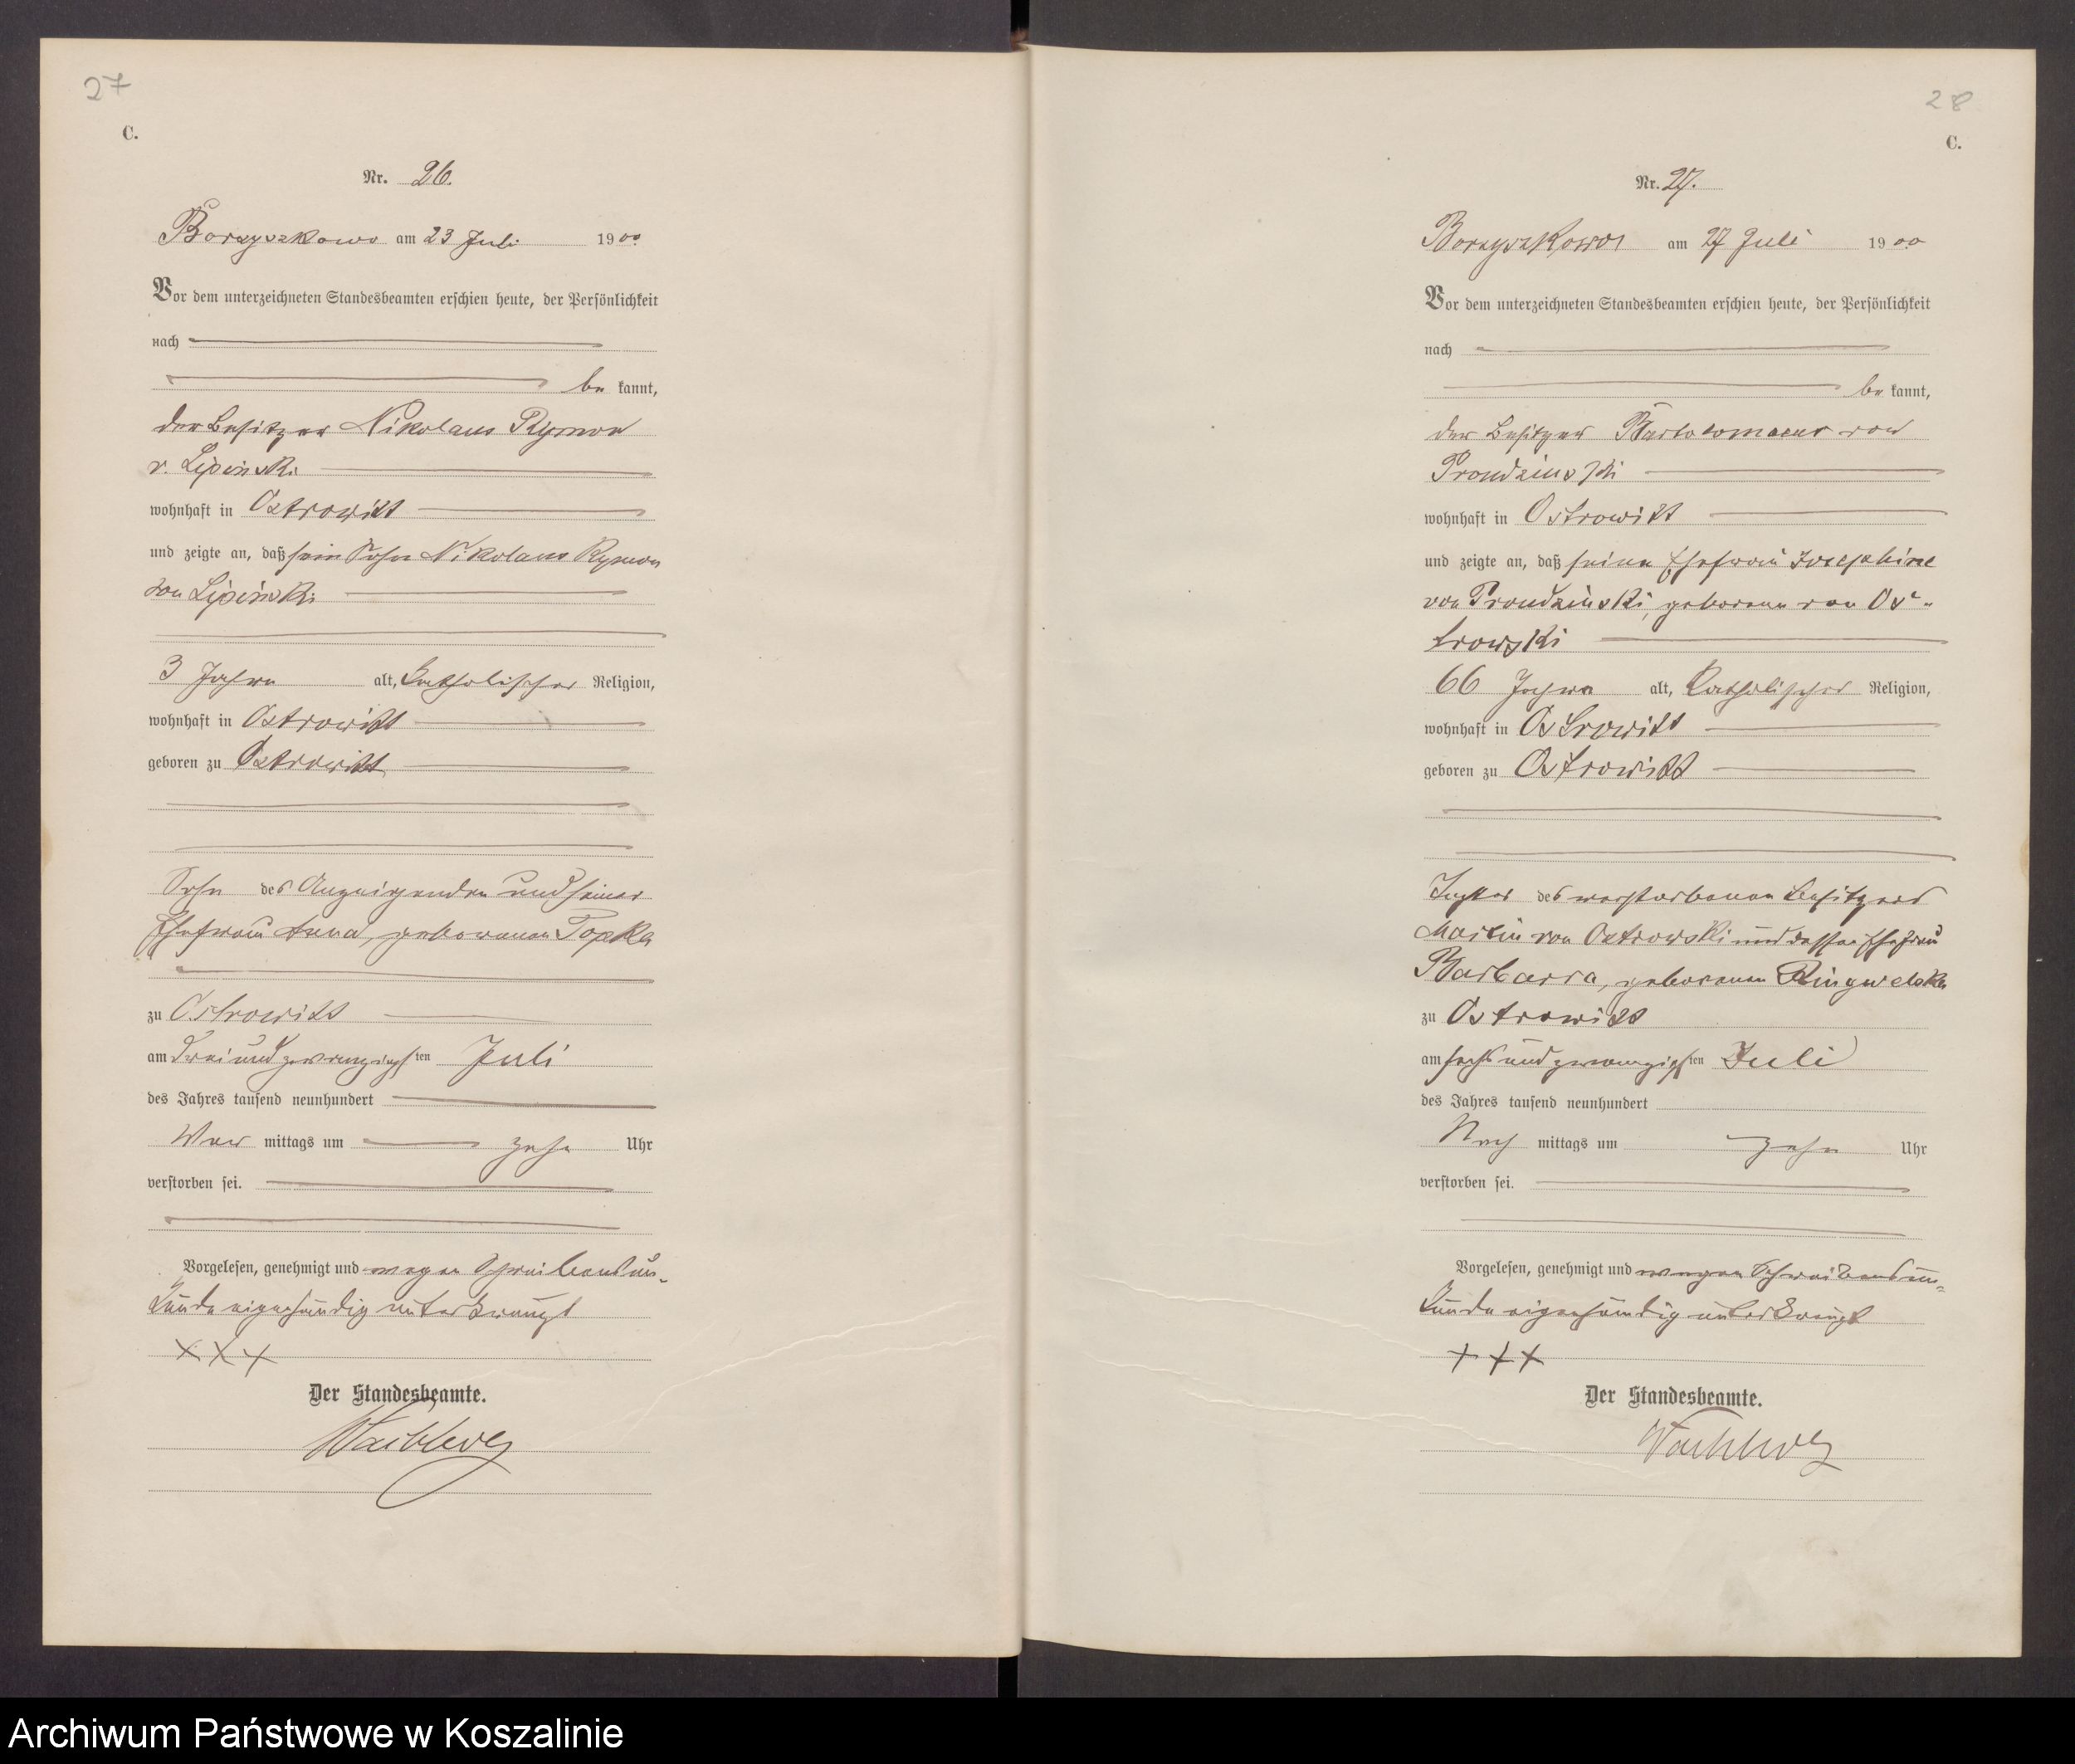 27
C.
Nr. 26.
Borzyszkowo am 23 Juli 1900
Vor dem unterzeichneten Standesbeamten erschien heute, der Persönlichkeit
nach
be kannt,
der Besitzer Nikolaus Rymon
v. Lipinski
wohnhaft in Ostrowitt
und zeigte an, daß sein Sohn Nikolaus Rymon
von Lipinski
3 Jahre alt, katholischer Religion,
wohnhaft in Ostrowitt
geboren zu Ostrowitt
Sohn des Anzeigenden und seiner
Ehefrau Anna, geborenen Topka
zu Ostrowitt
am drei und zwanzigsten Juli
des Jahres tausend neunhundert
Vor mittags um zehn Uhr
verstorben sei.
Vorgelesen, genehmigt und wegen Schreibensun-
kunde eigenhändig unterkreuzt
XXX
Der Standesbeamte.
28
C.
Nr. 27.
Borzyszkowo am 27 Juli 1900
Vor dem unterzeichneten Standesbeamten erschien heute, der Persönlichkeit
nach
be kannt,
der Besitzer Bartolomaeus von
Prondzinski
wohnhaft in Ostrowitt
und zeigte an, daß seine Ehefrau Josephine
von Prondzinski, geborene von Os-
trowski
66 Jahre alt, katholischer Religion,
wohnhaft in Ostrowitt
geboren zu Ostrowitt
Tochter des verstorbenen Besitzers
Martin von Ostrowski und dessen Ehefrau
Barbarra, geborenen Ringwelska
zu Ostrowitt
am sechs und zwanzigsten Juli
des Jahres tausend neunhundert
Nach mittags um zehn Uhr
verstorben sei.
Vorgelesen, genehmigt und wegen Schreibensun-
kunde eigenhändig unterkreuzt
+++
Der Standesbeamte.
Archiwum Państwowe w Koszalinie